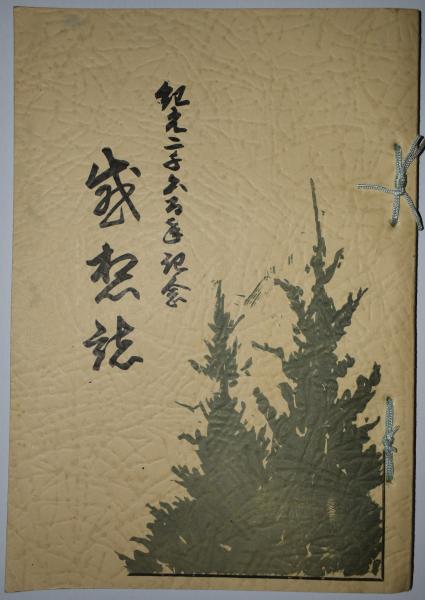 紀元二千六百年記念
感想誌